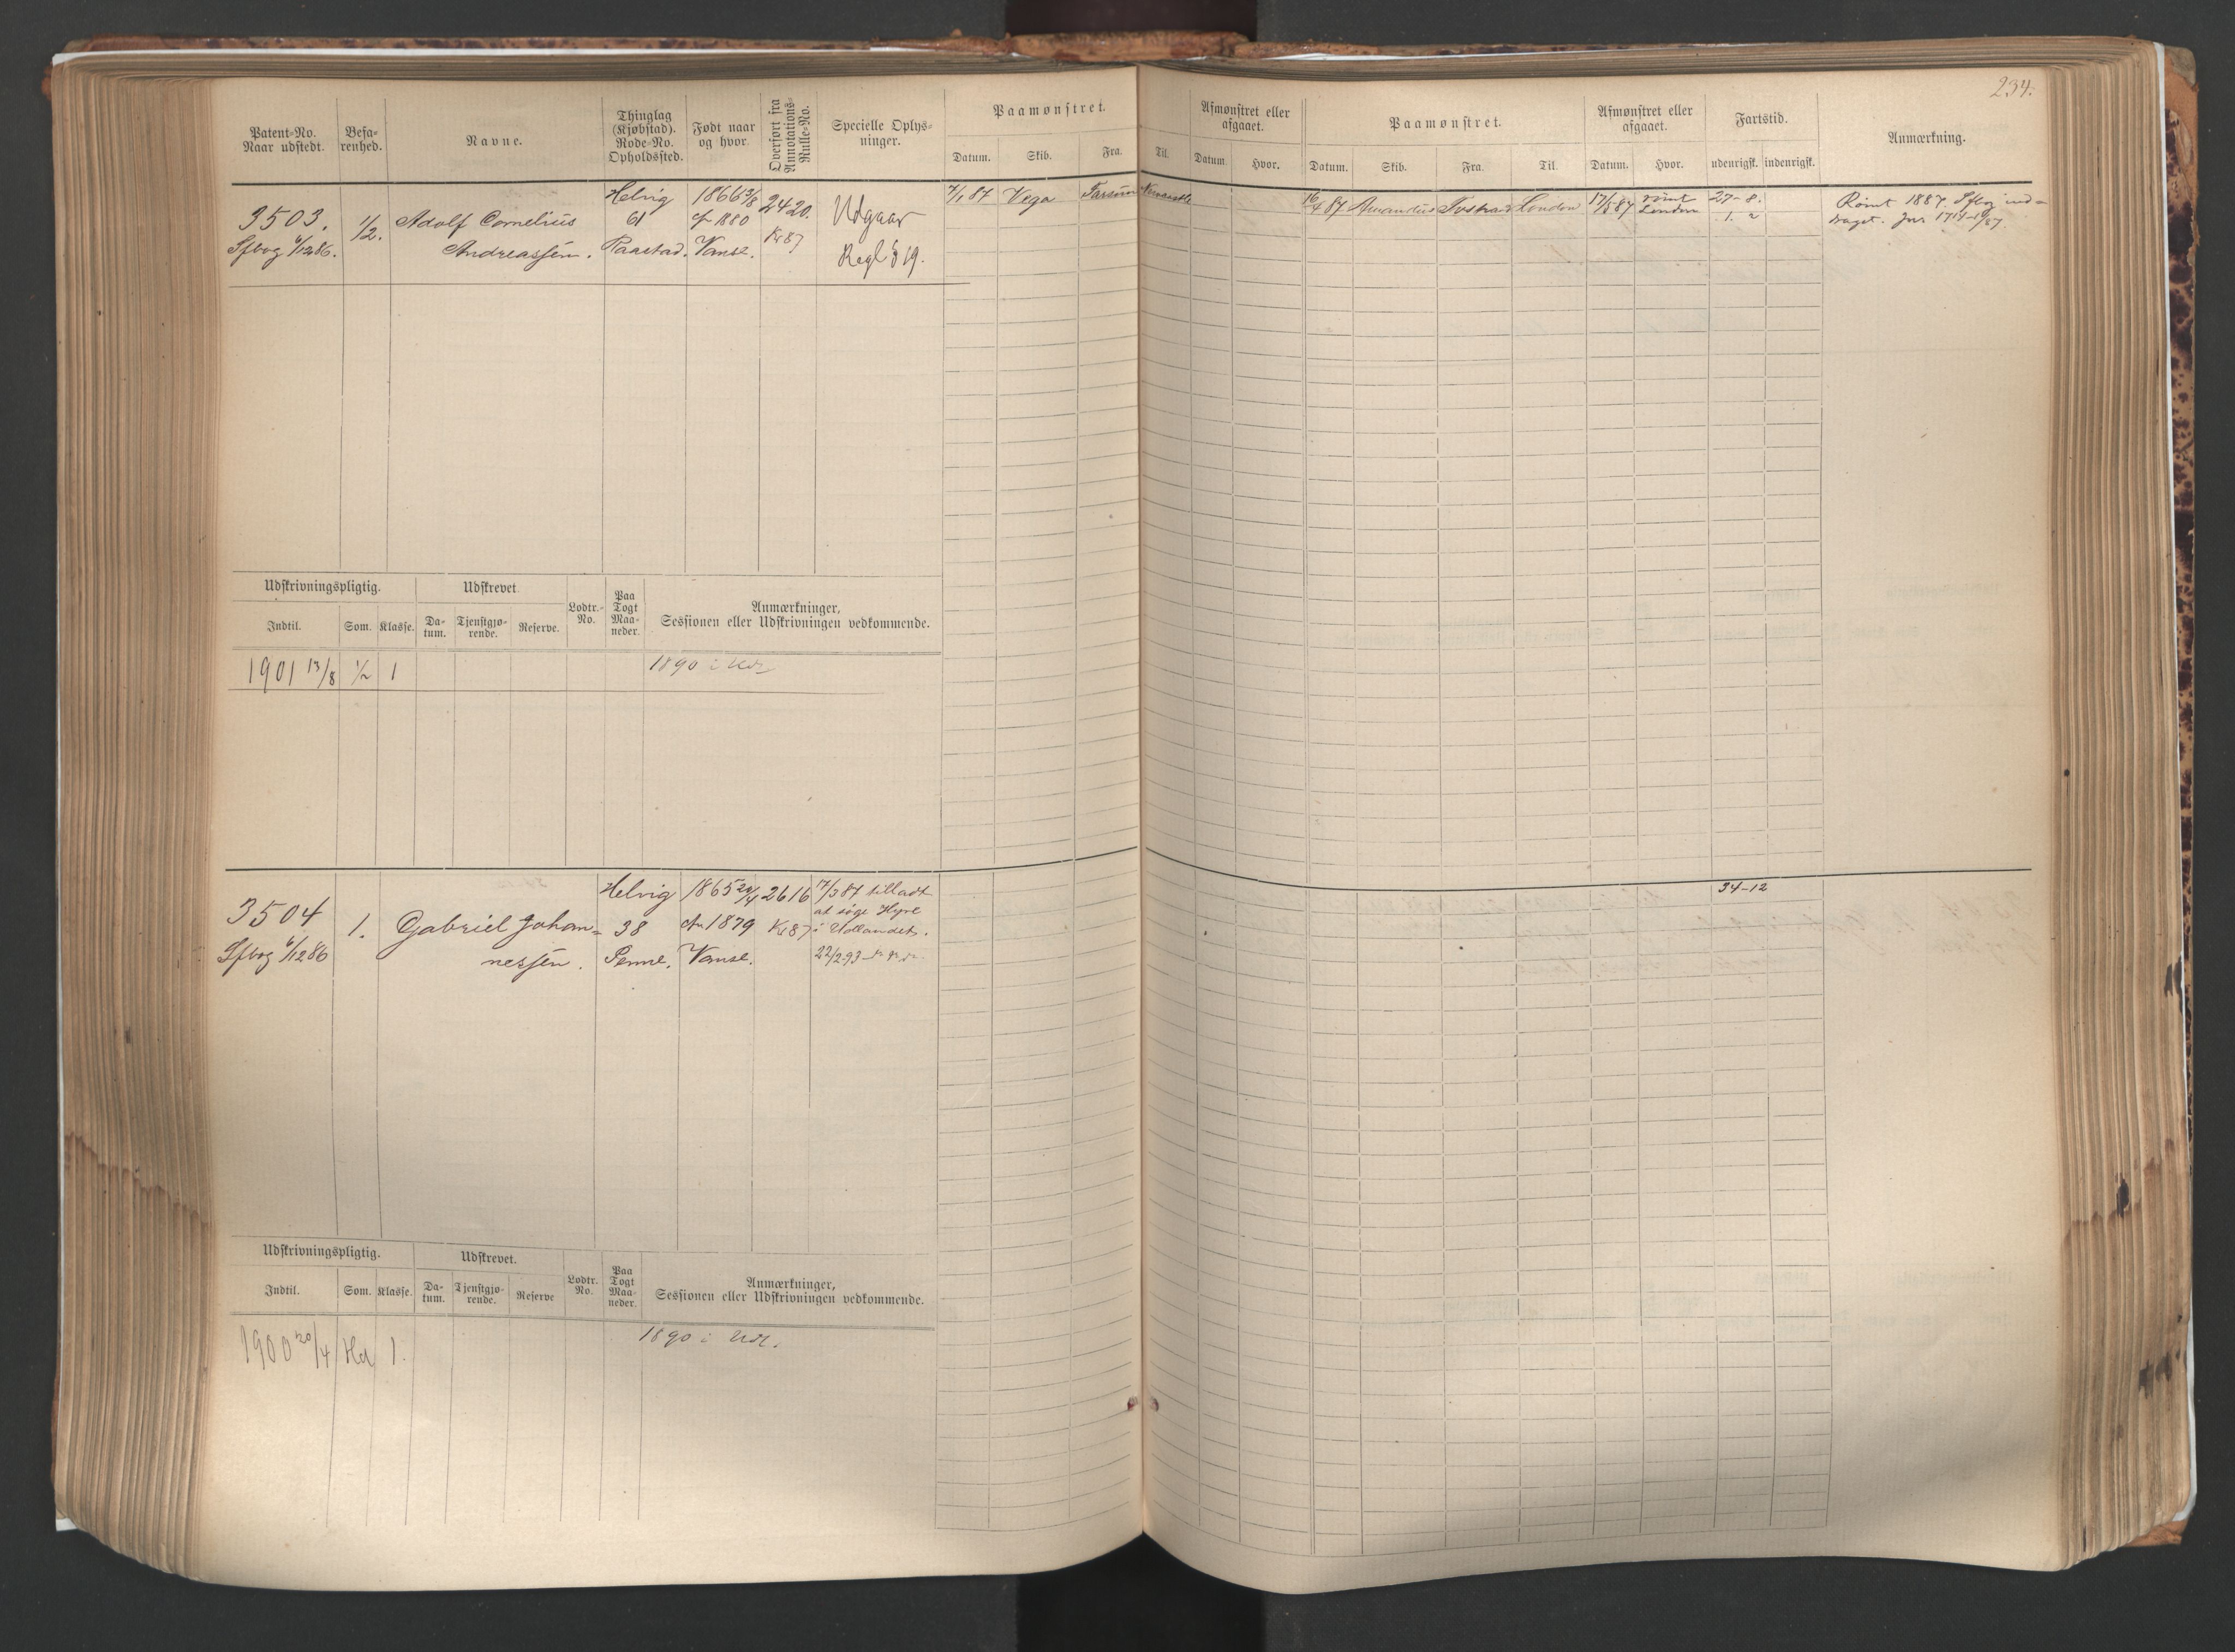 234.
Patent-No.
Naar udstedt.
Befa-
renhed.
Navne.
Thinglag
(Kjøbstad).
Rode-No.
Opholdssted.
Født naar
og hvor.
Overført fra
Annotations-
Rulle-No.
Specielle Oplys-
ninger.
Paamønstret.
Datum. Skib. Fra. Til.
Afmønstret eller
afgaaet.
Datum. Hvor.
Paamønstret.
Datum. Skib. Fra. Til.
Afmønstret eller
afgaaet.
Datum. Hvor.
Fartstid.
udenrigsk. indenrigsk.
Anmærkning.
3503.
Sfbog 6/12 86.
1/2.
Adolf Cornelius
Andreassen.
Helvig
61
Paastad.
1866 13/8
1880
Vanse.
2420.
K 87
Udgaar
Regl § 19.
7/1 87 Vega Farsund Newcastle
16/4 87 London 17/5 87 rømt
London
27-8.
1. 2
Rømt 1887. Sfbog ind-
draget.
Udskrivningspligtig.
Indtil. Som. Klasse.
Udskrevet.
Da-
tum.
Tjenstgjø-
rende.
Reserve.
Lodtr.-
No.
Paa
Togt
Maa-
neder.
Anmærkninger,
Sessionen eller Udskrivningen vedkommende.
1901 13/8 1/2 1
1890 i Udl.
3504
Sfbog 6/12 86
1.
Gabriel Johan-
nessen.
Helvig
38
Penne.
1865 20/4
1879
Vanse.
2616
K 87
17/3 87 tilladt
at søge Hyre
i Udlandet.
22/2 93
34-12
Udskrivningspligtig.
Indtil. Som. Klasse.
Udskrevet.
Da-
tum.
Tjenstgjø-
rende.
Reserve
Lodtr.
No.
Paa
Togt
Maa-
neder.
Anmærkninger,
Sessionen eller Udskrivningen vedkommende.
1900 20/4 Hel 1.
1890 i Udl.